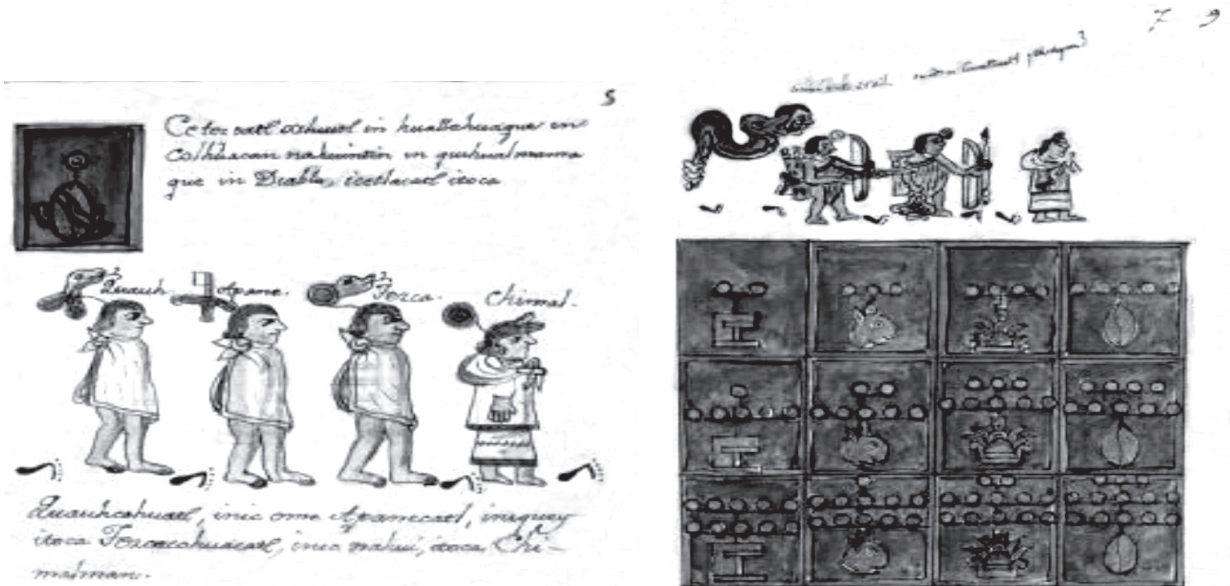 5
Ce tec patl xihuitl in huallehuaque in
Colhuacan nahuintin in quihualmama
que in Diablo, icetlacatl itoca
Quauh. Apane. Tezca. Chimal.
Quauhcohuatl, inic ome Apanecatl, iniquey
itoca Tezcacohuacatl, inic nahui, itoca Chi-
malman.
7 9